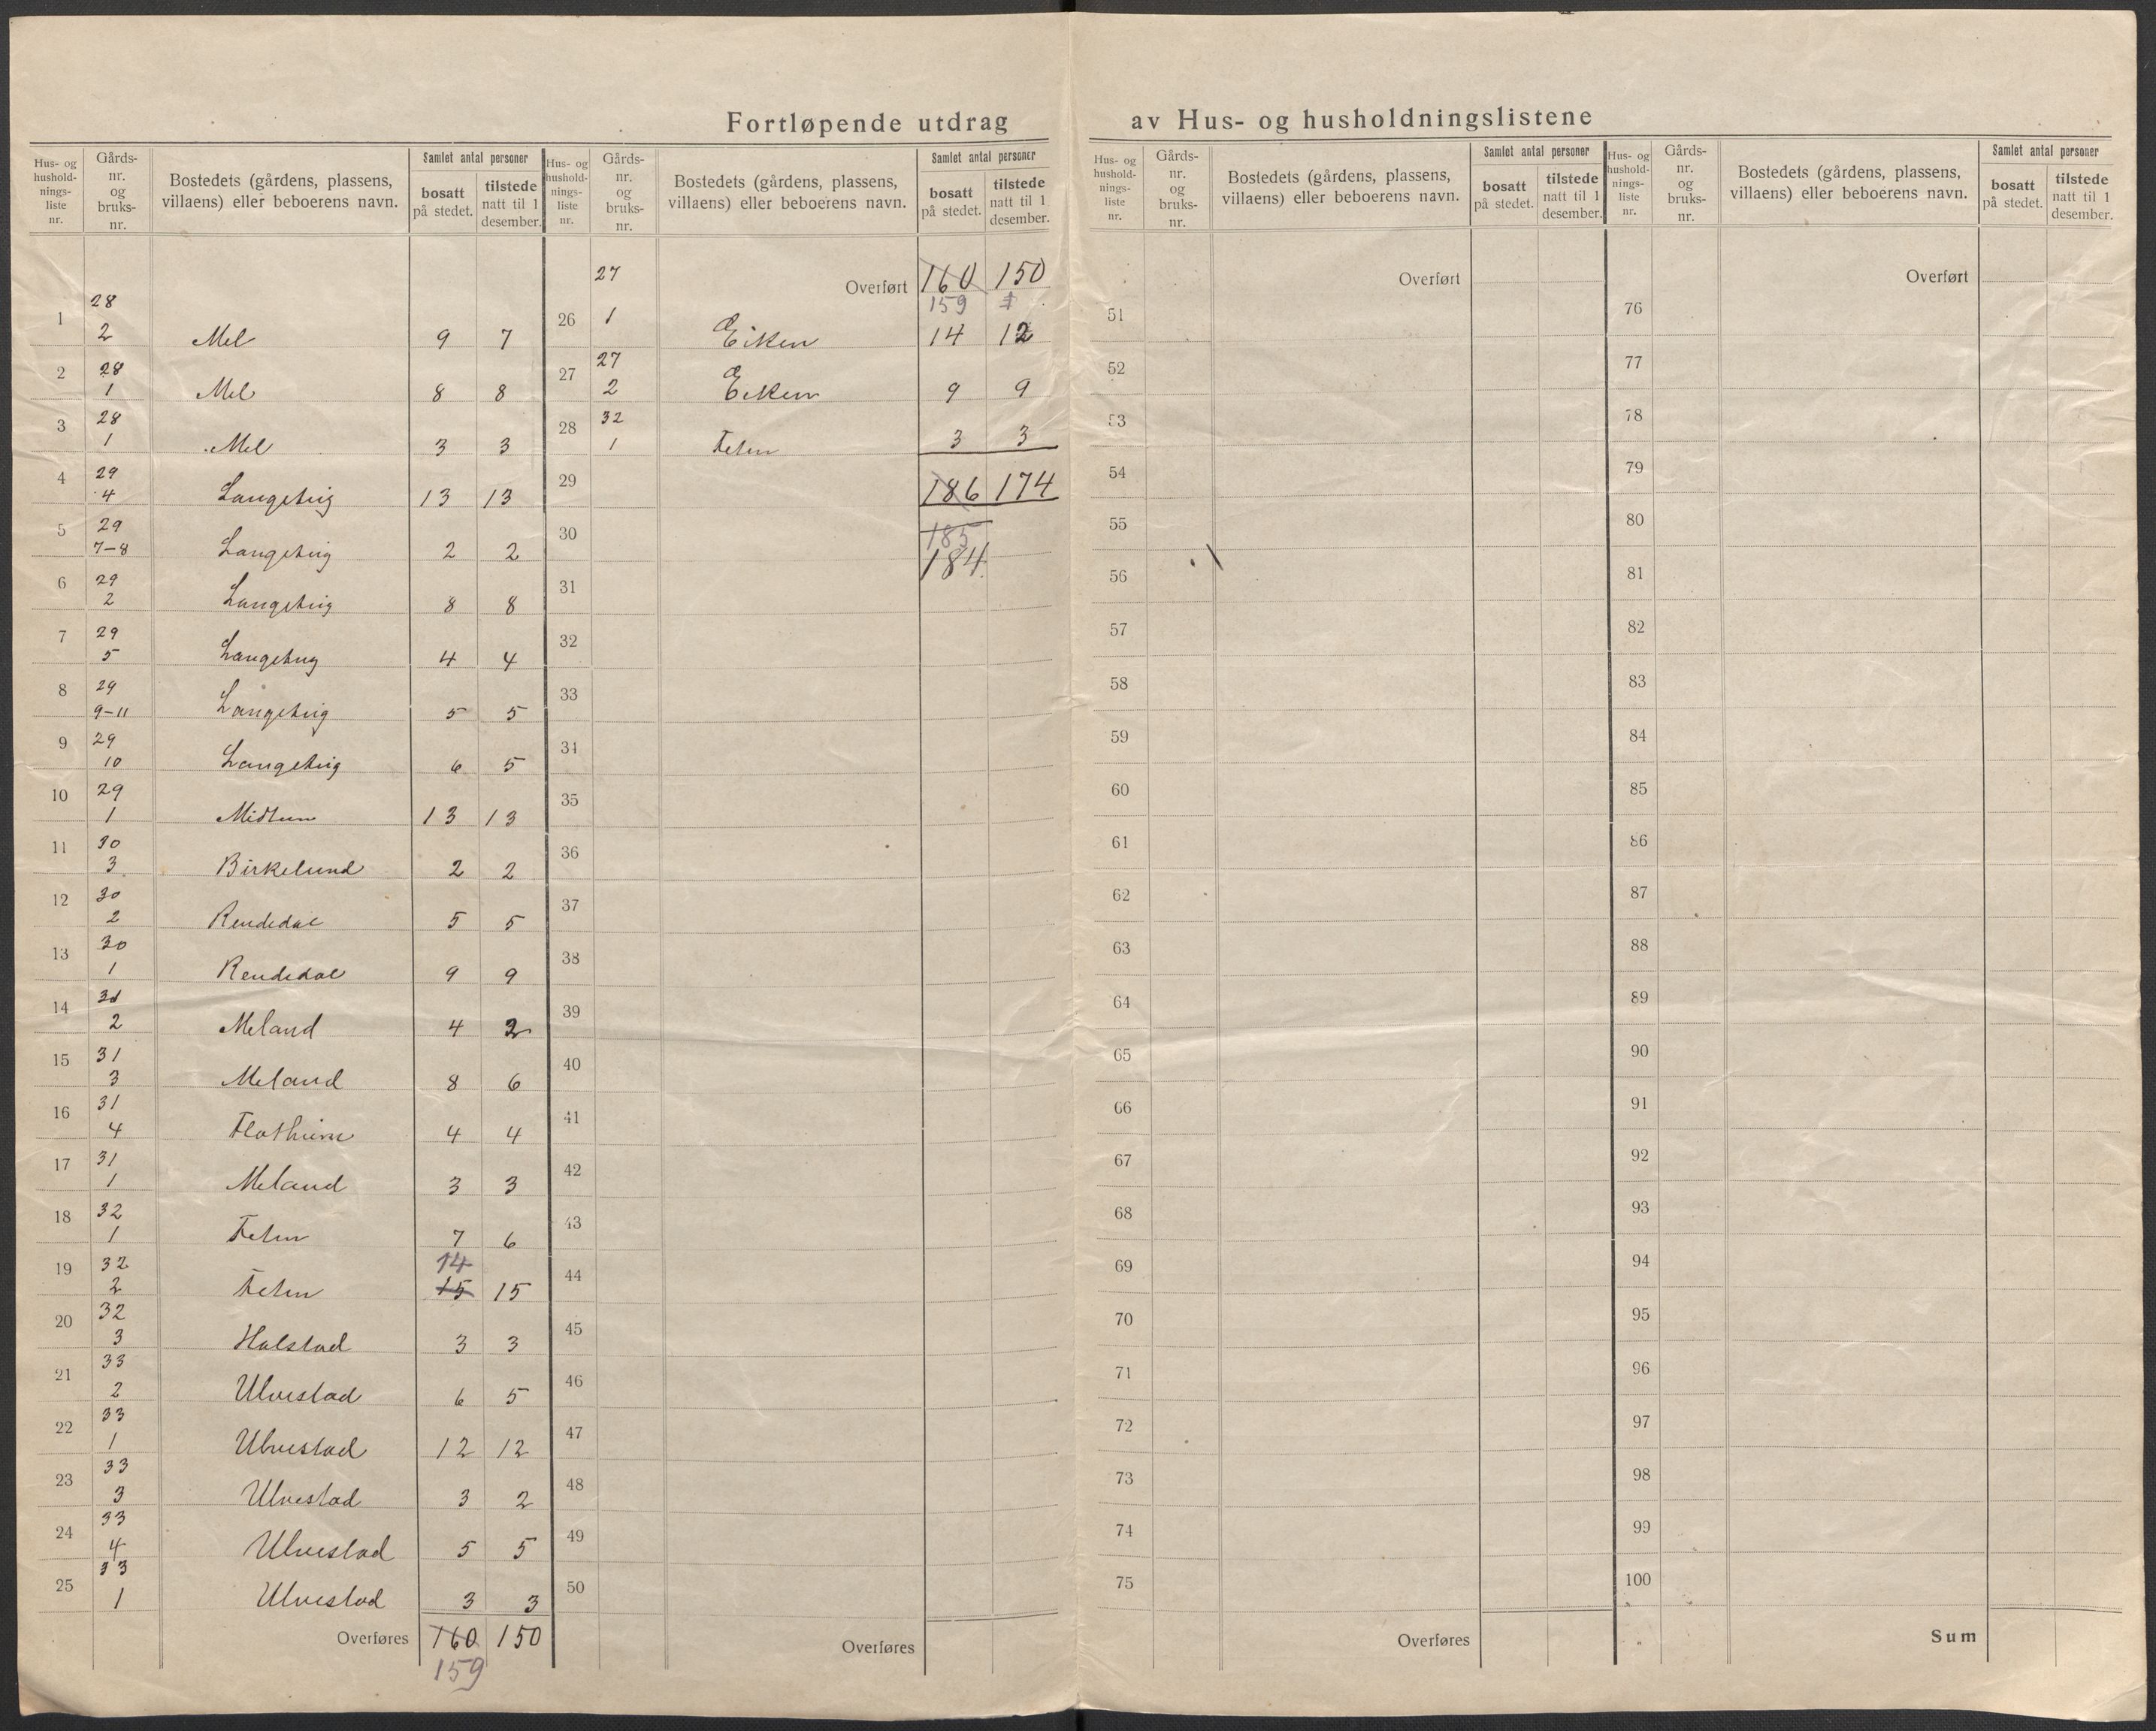 Fortløpende utdrag av Hus- og husholdningslistene
Hus- og hushold-nings-liste nr. Gårds-nr. og bruks-nr. Bostedets (gårdens, plassens, villaens) eller beboerens navn. Samlet antal personer bosatt på stedet. tilstede natt til 1 desember.
1 28 2 Mel 9 7
2 28 1 Mel 8 8
3 28 1 Mel 3 3
4 29 4 Langeteig 13 13
5 29 7-8 Langeteig 2 2
6 29 2 Langeteig 8 8
7 29 5 Langeteig 4 4
8 29 9-11 Langeteig 5 5
9 29 10 Langeteig 6 5
10 29 1 Midtun 13 13
11 30 3 Birkelund 2 2
12 30 2 Rendedal 5 5
13 30 1 Rendedal 9 9
14 31 2 Meland 4 2
15 31 3 Meland 8 6
16 31 4 Flotheim 4 4
17 31 1 Meland 3 3
18 32 1 Fetun 7 6
14
19 32 2 Fetun 15 15
20 32 3 Halstad 3 3
21 33 2 Ulvestad 6 5
22 33 1 Ulvestad 12 12
23 33 3 Ulvestad 3 2
24 33 4 Ulvestad 5 5
25 33 1 Ulvestad 3 3
Overføres 160 150
159
Hus- og hushold-nings-liste nr. Gårds-nr. og bruks-nr. Bostedets (gårdens, plassens, villaens) eller beboerens navn. Samlet antal personer bosatt på stedet. tilstede natt til 1 desember.
Overført 160 150
159
26 27 1 Eiken 14 12
27 27 2 Eiken 9 9
28 32 1 Fetun 3 3
29 186 174
30 185
184
31
32
33
34
35
36
37
38
39
40
41
42
43
44
45
46
47
48
49
50
Overføres
Hus- og hushold-nings-liste nr. Gårds-nr. og bruks-nr. Bostedets (gårdens, plassens, villaens) eller beboerens navn. Samlet antal personer bosatt på stedet. tilstede natt til 1 desember.
Overført
51
52
53
54
55
56
57
58
59
60
61
62
63
64
65
66
67
68
69
70
71
72
73
74
75
Overføres
Hus- og hushold-nings-liste nr. Gårds-nr. og bruks-nr. Bostedets (gårdens, plassens, villaens) eller beboerens navn. Samlet antal personer bosatt på stedet. tilstede natt til 1 desember.
Overført
76
77
78
79
80
81
82
83
84
85
86
87
88
89
90
91
92
93
94
95
96
97
98
99
100
Sum